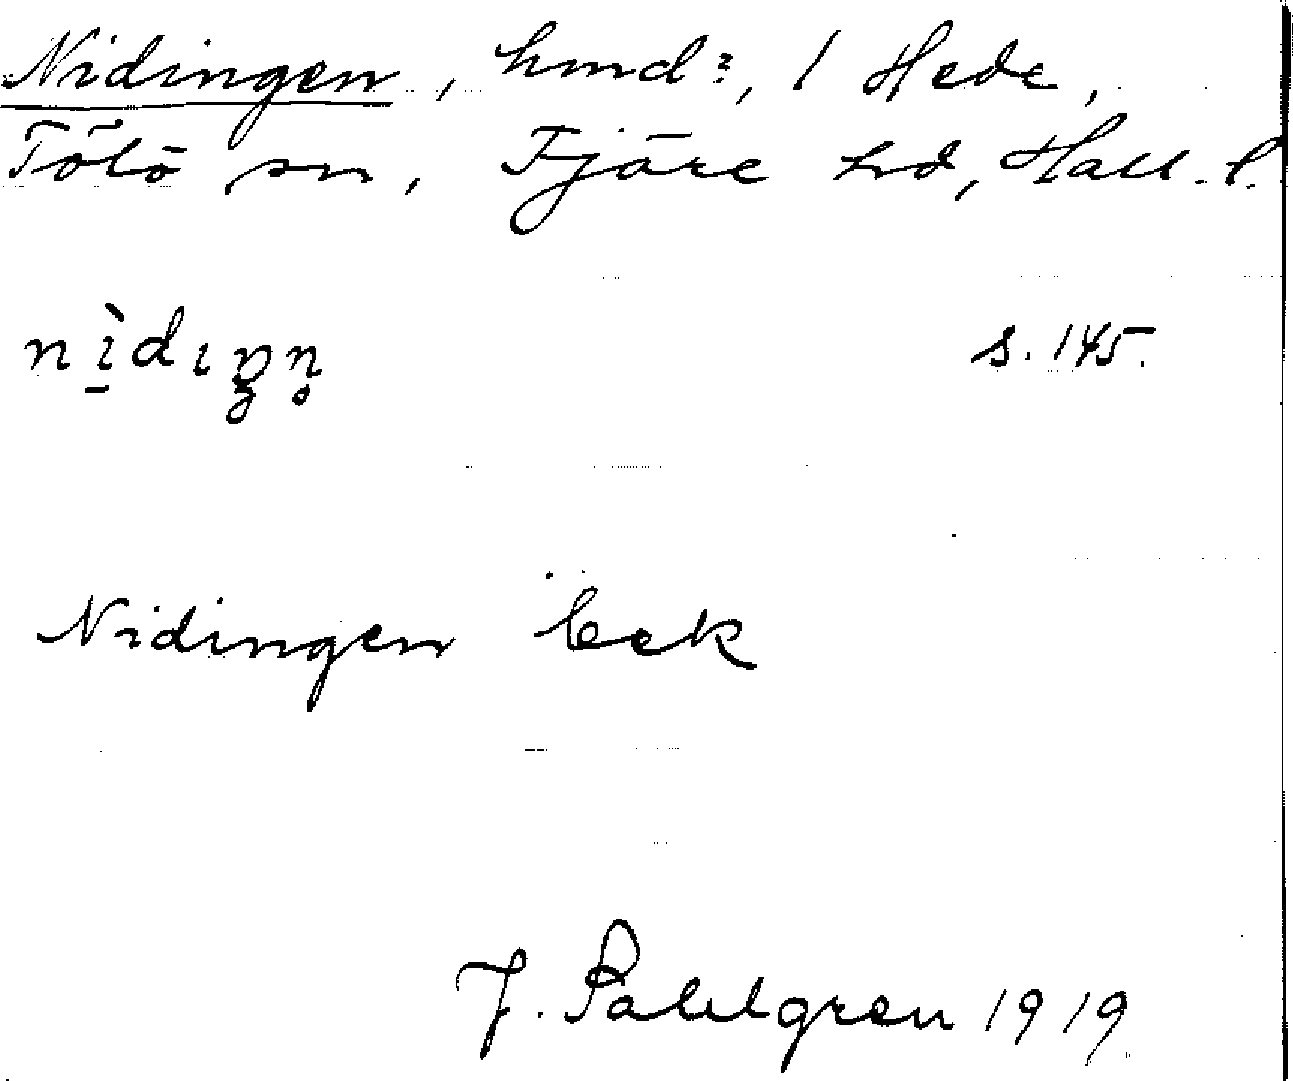 Nidingen, hmd?, 1 Hede,
Tölö sn, Fjäre hd, Hall. l.
nìdıŋn̥ s. 145.
Nidingen Eek
J. Sahlgren 1919